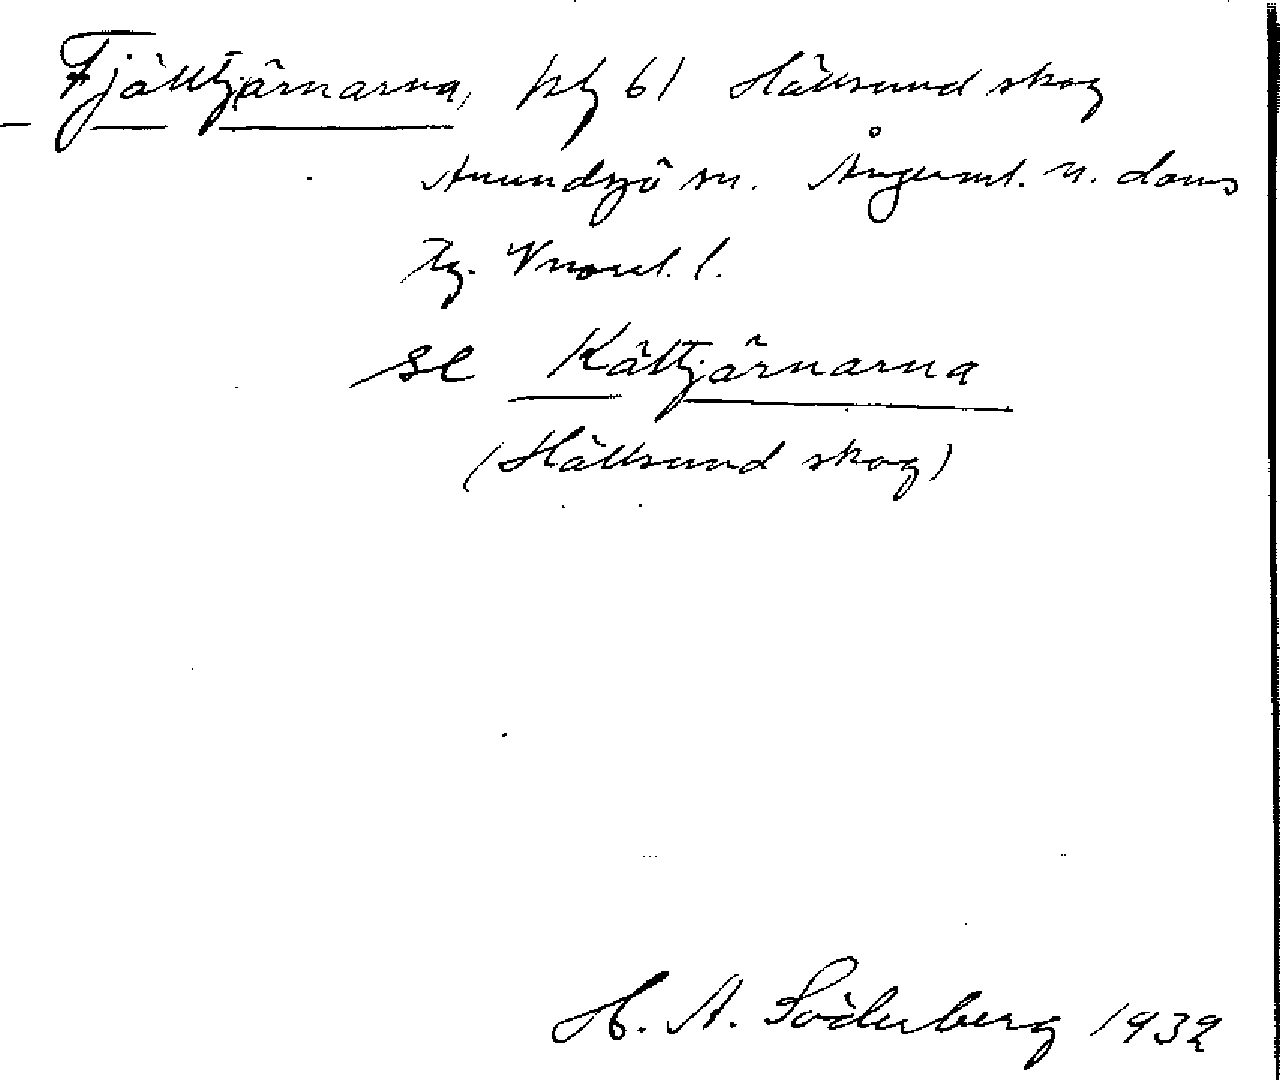 Fjälltjärnarna, pkg 61 Hällsund skog
Anundsjö sn. Ångerml. n. doms
Lg. Vnorrl. l.
se Källtjärnarna
(Hällsund skog)
H. A. Söderberg 1932